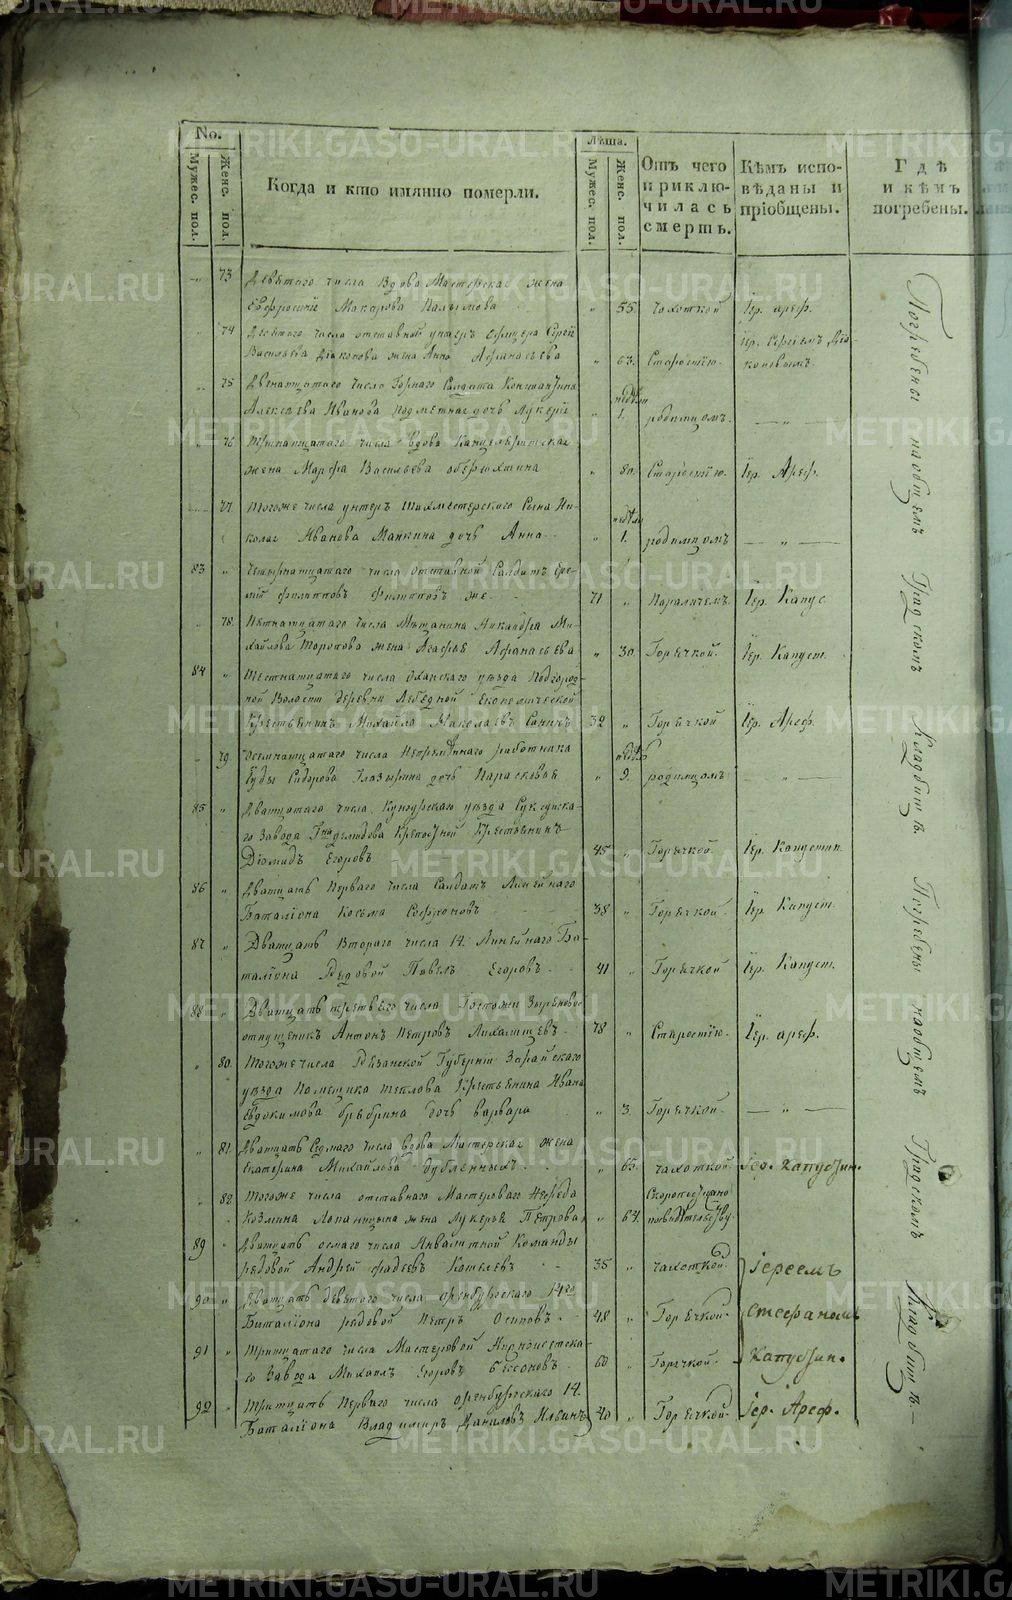 No.
Мужес. пол.
Женс. пол.
Когда и кто имянно померли.
Лѣта.
Мужес. пол.
Женс. пол.
Отъ чего приклю-
чилась
смерть.
Кѣмъ испо-
вѣданы и
пріобщены.
Гдѣ
и кѣмъ
погребены.
73 Девятаго числа Вдова Мастерская жена
Евфросинія Макарова 55 чахоткой Іер. Ареф.
74 числа отставнаго унтеръ Офицера Сергѣя
Васильева Діаконова жена Анна Афанасьева 63. Старостію. Іер. Діа-
коновымъ.
75 Двенатцатаго числа Горнаго Солдата Константина
Алексѣева Иванова подметная дочь Лукерія недѣли 1. родимцомъ. — „ —
76 Тринатцатаго числа вдова Канцеляритская
жена Марфа Васильева 80. Старостію. Іер. Ареф.
77 Тогоже числа унтеръ Шихмейстерскаго Сына Ни-
колая Иванова Манкина дочь Анна недѣли 1. родимцомъ — „ —
83 „ Четырнатцатаго числа отставной Солдатъ Ере-
мѣй Филипповъ Филипповъ же 71 „ Параличемъ Іер. Капус.
78. Пятнатцатаго числа Мѣщанина Никандра Ми-
хайлова Торопова жена Агафья Афанасьева „ 30. Горячкой. Іер. Капуст.
84 „ Шестнатцатаго числа Оханскаго уѣзда Подгород-
ной Волости деревни Лебедной Економической
Крестьянинъ Михайла Николаевъ Санинъ 32 „ Горячкой Іер. Ареф.
79 Осемнатцатаго числа Непремѣннаго работника
Сидорова Глазырина дочь Парасковья недѣль „ 9. родимцомъ — „ —
85 „ Дватцатаго числа Кунгурскаго уѣзда Суксунска-
го Завода Крепостной Крестьянинъ
Діомидъ Егоровъ 45 „ Горячкой. Іер. Капустин.
86 „ Дватцать Перваго числа Солдатъ Линейнаго
Баталіона Косьма Софроновъ 38 „ Горячкой. Іер. Капуст.
87 „ Дватцать Втораго числа 14. Линейнаго Ба-
таліона Рядовой Павелъ Егоровъ 41 „ Горячкой Іер. Капуст.
88 „ Дватцать третьего числа Госпожи Зыреновой
отпущеникъ Антонъ Петровъ 78 „ Старостію. Іер. Ареф.
„ 80. Тогоже числа Рязанской Губерніи Зарайскаго
уѣзда Помещика Теплова Крестьянина Ивана
Евдокимова дочь Варвара „ 3. Горячкой. — „ —
„ 81. Дватцать Седмаго числа вдова Мастерская жена
Екатерина Михайлова „ 65. чахоткой Іер. Капустин.
„ 82. Тогоже числа отставнаго Мастероваго Нефеда
Козмина Лопанцына жена Лукерья Петрова „ 64. Скоропостижно
89 „ Дватцать осмаго числа Инвалитной Команды
рядовой Андрей Фадеевъ 35 „ чахоткой. Іереемъ
90 „ Дватцать девятаго числа Оренбургскаго 14го
Баталіона рядовой Петръ Осиповъ 48 „ Горячкой. Стефаномъ
91 „ Тритцатаго числа Мастеровой Нижнеисетска-
го Завода Михаилъ Егоровъ Бессоновъ 60 „ Горячкой. Капустин.
92 „ Тритцать Перваго числа Оренбургскаго 14.
Баталіона Владимиръ Даниловъ Ильинъ 40 „ Горячкой Іер. Ареф.
Погребены на общемъ Градскомъ Кладбищѣ.
Погребены на общемъ Градскомъ Кладбищѣ —
METRIKI.GASO-URAL.RU